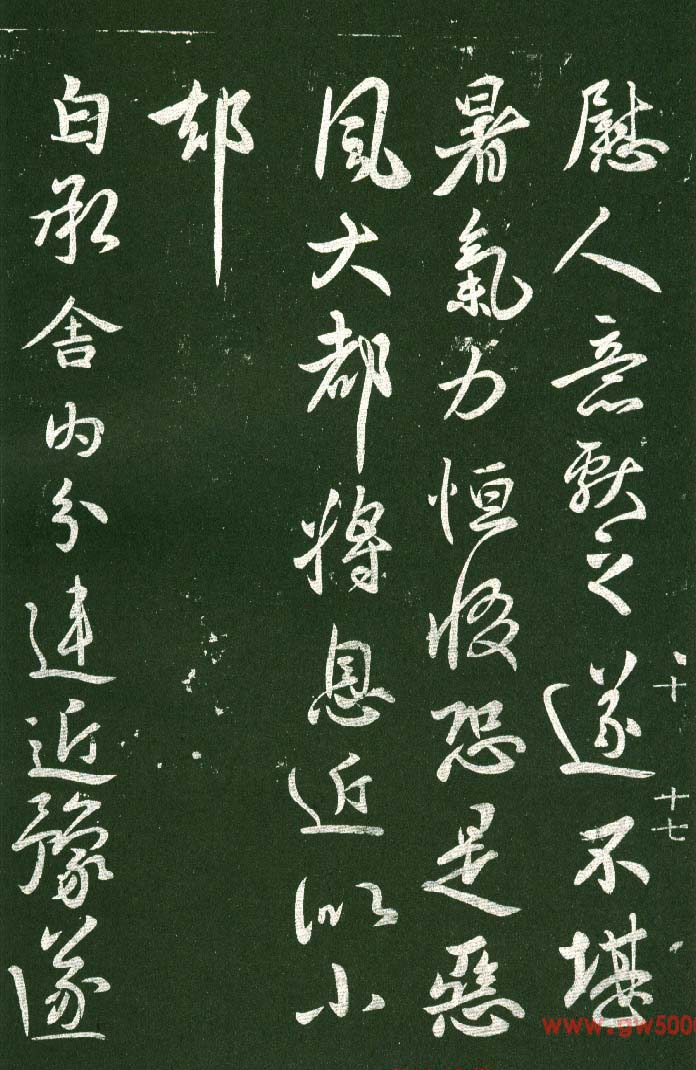 慰人意之遂不堪
暑氣力恒惙恐是惡
風大都將息近似小
却
自承舍内分違近豫遂
十
十七
www.gw500